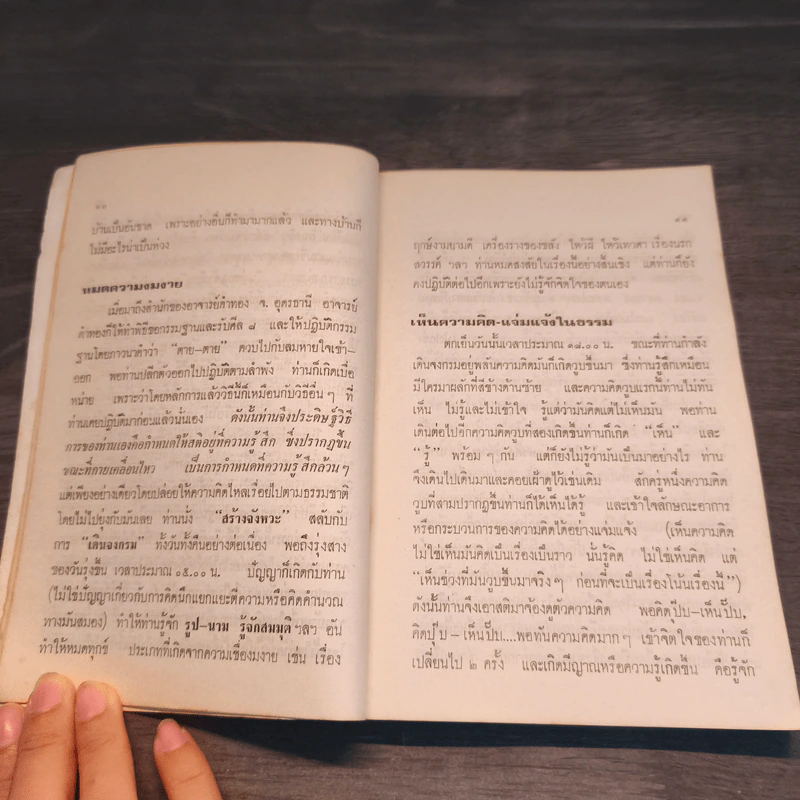 ๑๐
บ้านเป็นอันขาด เพราะอย่างอื่นก็ทำมามากแล้ว และทางบ้านก็
ไม่มีอะไรน่าเป็นห่วง
หมดความงมงาย
เมื่อมาถึงสำนักของอาจารย์คำทอง จ. อุดรธานี อาจารย์
คำทองก็ให้ทำพิธีขอกรรมฐานและรับศีล ๘ และให้ปฏิบัติกรรม
ฐานโดยภาวนาคำว่า “ตาย-ตาย” ควบไปกับลมหายใจเข้า-
ออก พอท่านปลีกตัวออกไปปฏิบัติตามลำพัง ท่านก็เกิดเบื่อ
หน่าย เพราะว่าโดยหลักการแล้ววิธีนี้ก็เหมือนกับวิธีอื่น ๆ ที่
ท่านเคยปฏิบัติมาก่อนแล้วนั่นเอง ดังนั้นท่านจึงประดิษฐ์วิธี
การของท่านเองคือกำหนดให้สติอยู่ที่ความรู้สึก ซึ่งปรากฏขึ้น
ขณะที่กายเคลื่อนไหว เป็นการกำหนดที่ความรู้สึกล้วน ๆ
แต่เพียงอย่างเดียวโดยปล่อยให้ความคิดไหลเรื่อยไปตามธรรมชาติ
โดยไม่ไปยุ่งกับมันเลย ท่านนั่ง “สร้างจังหวะ” สลับกับ
การ “เดินจงกรม” ทั้งวันทั้งคืนอย่างต่อเนื่อง พอถึงรุ่งสาง
ของวันรุ่งขึ้น เวลาประมาณ ๐๕.๐๐ น. ปัญญาก็เกิดกับท่าน
(ไม่ใช่ปัญญาเกี่ยวกับการคิดนึกแยกแยะตีความหรือคิดคำนวณ
ทางมันสมอง) ทำให้ท่านรู้จัก รูป-นาม รู้จักสมมุติ ฯลฯ อัน
ทำให้หมดทุกข์ ประเภทที่เกิดจากความเชื่องมงาย เช่น เรื่อง
๑๑
ฤกษ์งามยามดี เครื่องรางของขลัง ไหว้ผี ไหว้เทวดา เรื่องนรก
สวรรค์ ฯลฯ ท่านหมดสงสัยในเรื่องนี้อย่างสิ้นเชิง แต่ท่านก็ยัง
คงปฏิบัติต่อไปอีกเพราะยังไม่รู้จักจิตใจของตนเอง
เห็นความคิด-แจ่มแจ้งในธรรม
ตกเย็นวันนั้นเวลาประมาณ ๑๘.๐๐ น. ขณะที่ท่านกำลัง
เดินจงกรมอยู่พลันความคิดมันก็เกิดวูบขึ้นมา ซึ่งท่านรู้สึกเหมือน
มีใครมาผลักที่สีข้างด้านซ้าย และความคิดวูบแรกนี้ท่านไม่ทัน
เห็น ไม่รู้และไม่เข้าใจ รู้แต่ว่ามันคิดแต่ไม่เห็นมัน พอท่าน
เดินต่อไปอีกความคิดวูบที่สองเกิดขึ้นท่านก็เกิด “เห็น” และ
“รู้” พร้อม ๆ กัน แต่ก็ยังไม่รู้ว่ามันเป็นมาอย่างไร ท่าน
จึงเดินไปเดินมาและคอยเฝ้าดูไว้เช่นเดิม สักครู่หนึ่งความคิด
วูบที่สามปรากฏขึ้นท่านก็ได้เห็นได้รู้ และเข้าใจลักษณะอาการ
หรือกระบวนการของความคิดได้อย่างแจ่มแจ้ง (เห็นความคิด
ไม่ใช่เห็นมันคิดเป็นเรื่องเป็นราว นั้นรู้คิด ไม่ใช่เห็นคิด แต่
“เห็นช่วงที่มันวูบขึ้นมาจริง ๆ ก่อนที่จะเป็นเรื่องโน้นเรื่องนี้”)
ดังนั้นท่านจึงเอาสติมาจ้องดูตัวความคิด พอคิดปุ๊บ-เห็นปั๊บ,
คิดปุ๊บ-เห็นปั๊บ....พอทันความคิดมาก ๆ เข้าจิตใจของท่านก็
เปลี่ยนไป ๒ ครั้ง และเกิดมีญาณหรือความรู้เกิดขึ้น คือรู้จัก